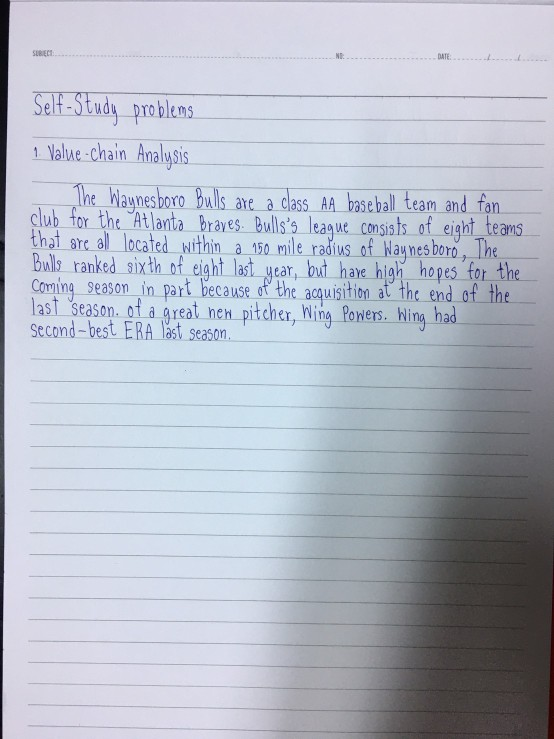 SUBJECT:
NO:
DATE: / /
Self-Study problems
1 Value-chain Analysis
The Waynesboro Bulls are a class AA baseball team and fan
club for the Atlanta Braves. Bulls's league consists of eight teams
that are all located within a 150 mile radius of Waynesboro, The
Bulls ranked sixth of eight last year, but have high hopes for the
coming season in part because of the acquisition at the end of the
last season. of a great new pitcher, Wing Powers. Wing had
second-best ERA last season.